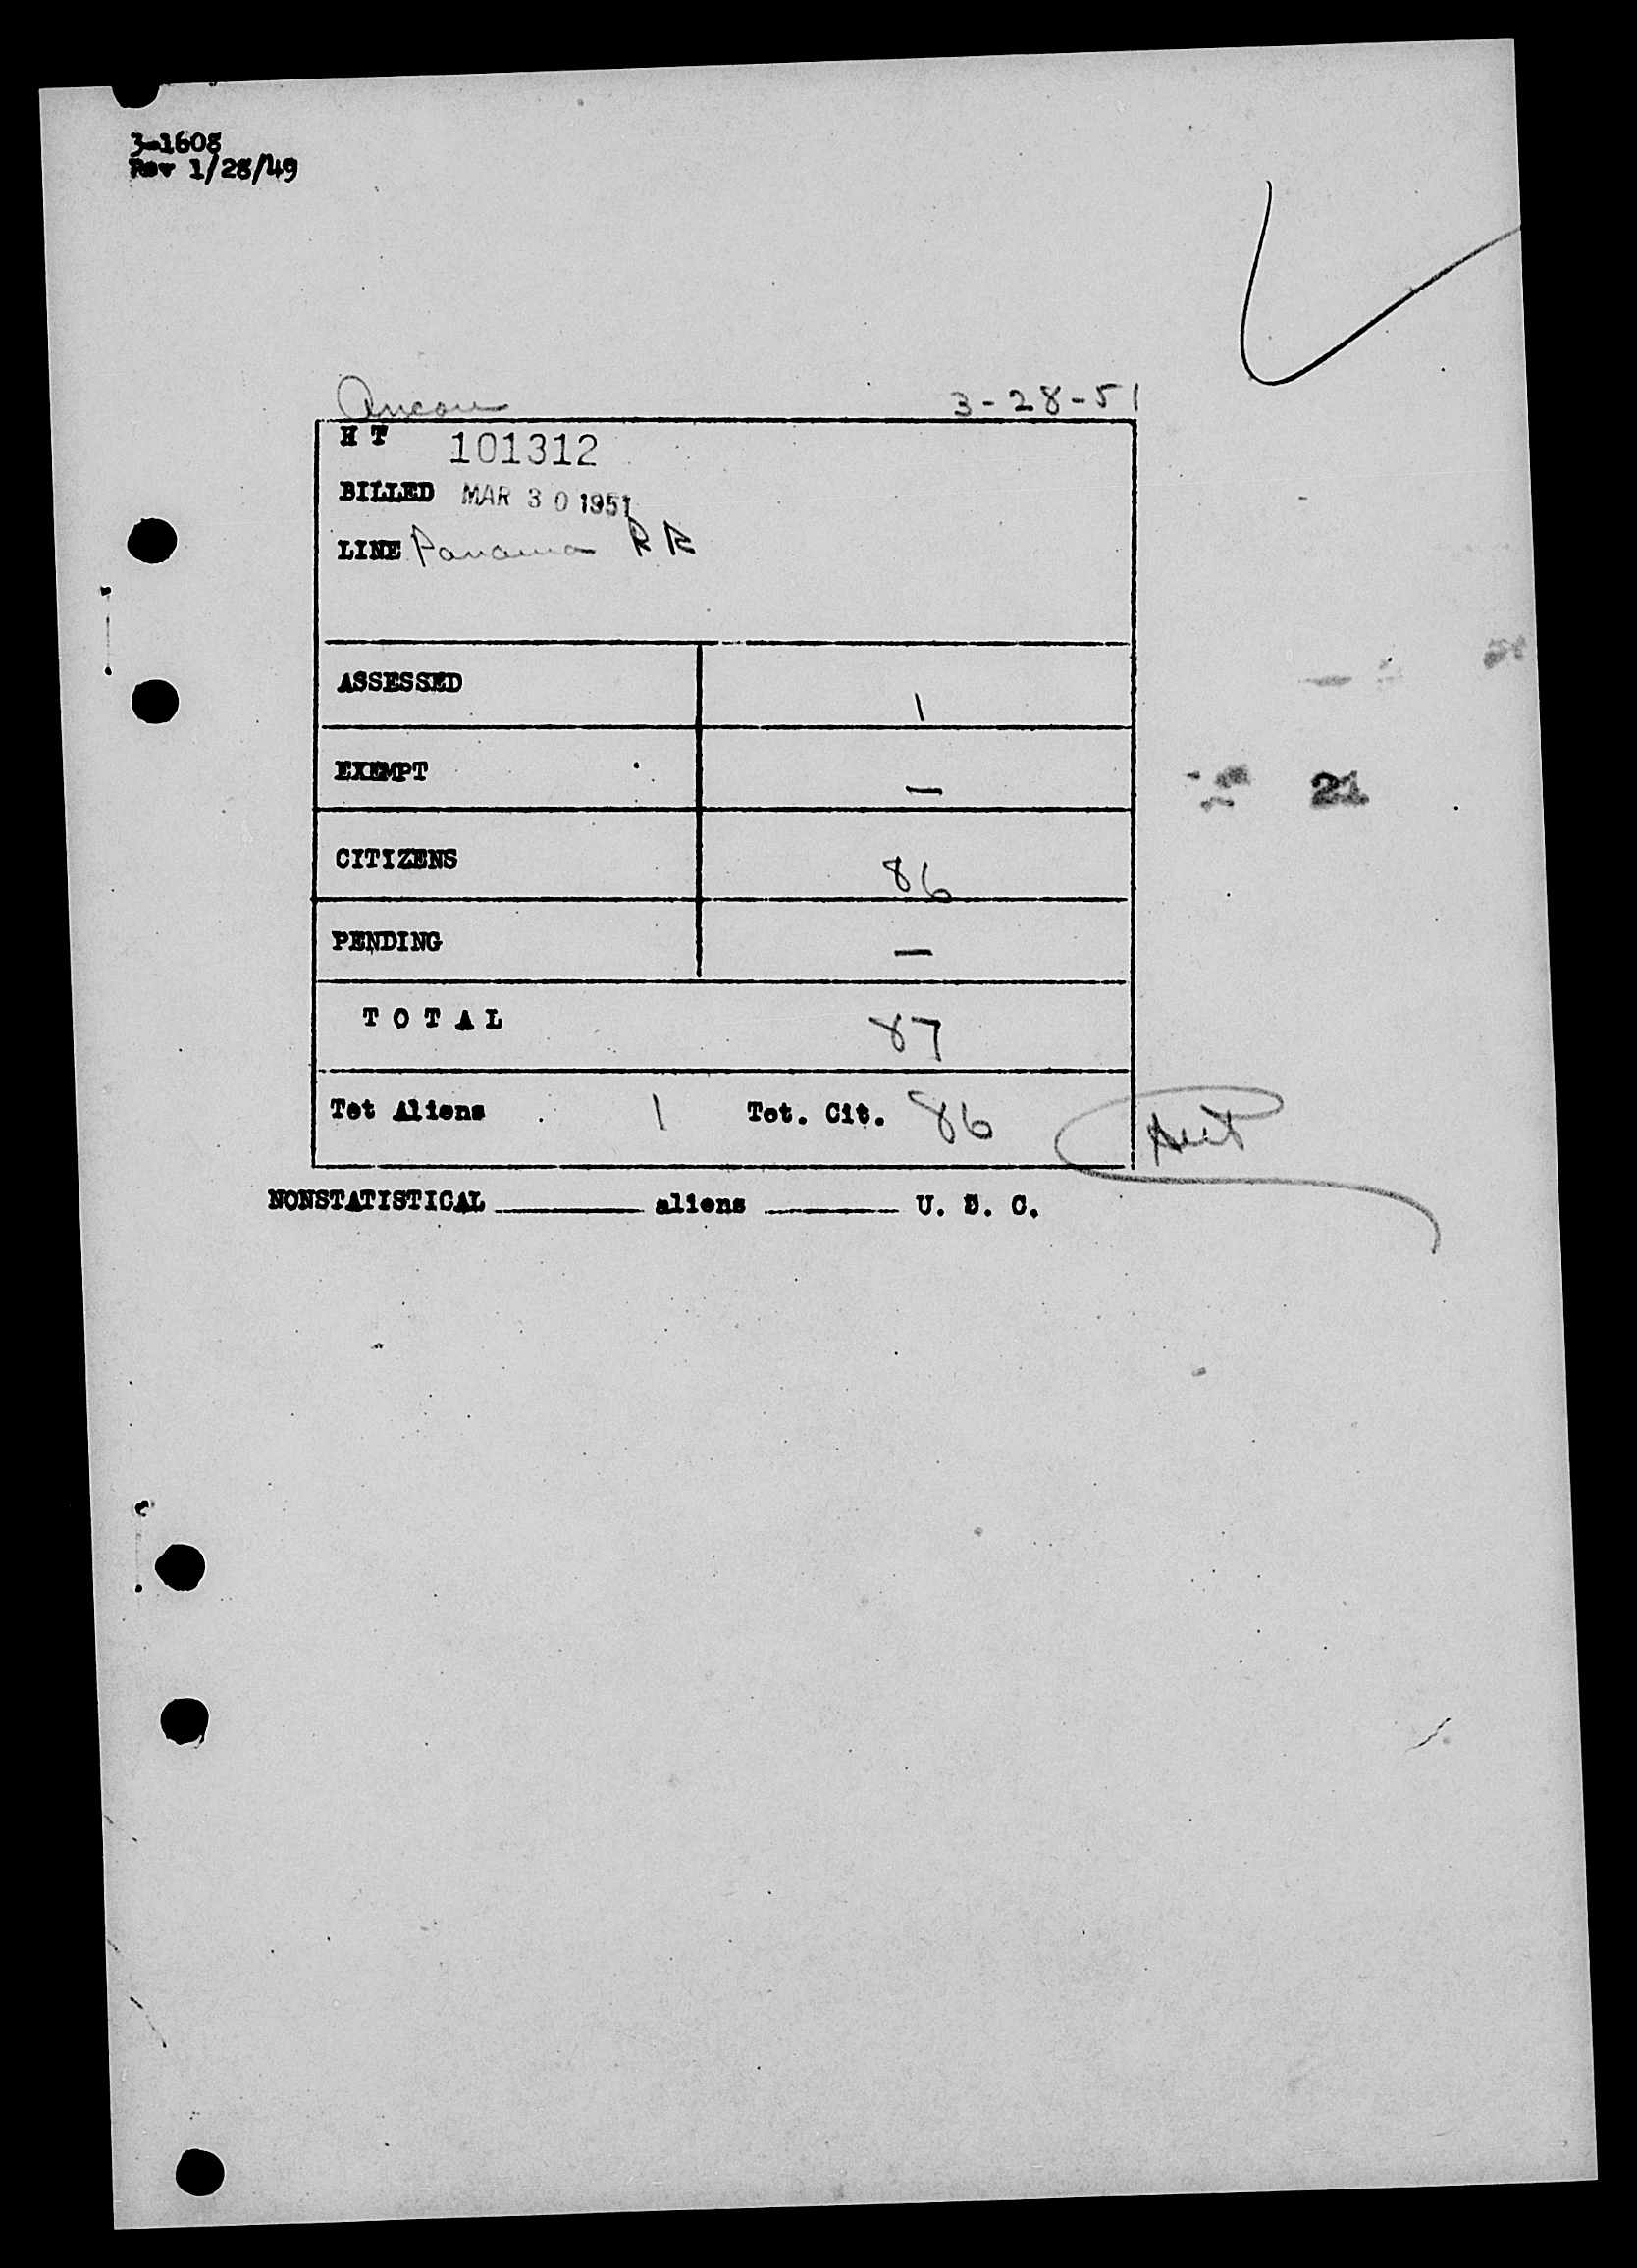 3-1608
Rev 1/28/49
Ancon 3-28-51
H T 101312
BILLED MAR 30 1951
LINE Panama R R
ASSESSED 1
EXEMPT —
CITIZENS 86
PENDING —
TOTAL 87
Tot Aliens 1 Tot. Cit. 86
NONSTATISTICAL ________ aliens ________ U. S. C.
21